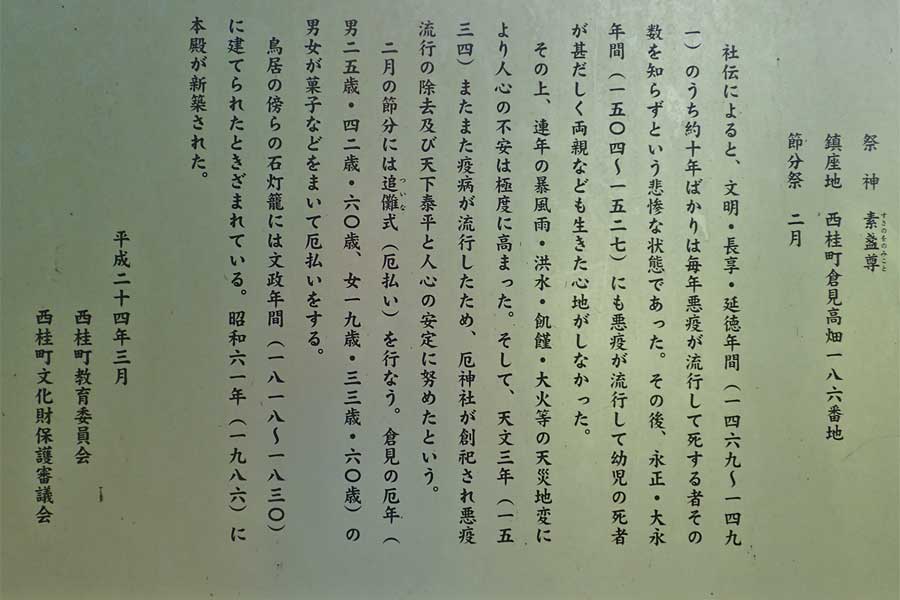 祭神　素盞尊
すさのをのみこと
鎮座地　西桂町倉見高畑一八六番地
節分祭　二月
社伝によると、文明・長享・延徳年間（一四六九～一四九
一）のうち約十年ばかりは毎年悪疫が流行して死する者その
数を知らずという悲惨な状態であった。その後、永正・大永
年間（一五〇四～一五二七）にも悪疫が流行して幼児の死者
が甚だしく両親なども生きた心地がしなかった。
その上、連年の暴風雨・洪水・飢饉・大火等の天災地変に
より人心の不安は極度に高まった。そして、天文三年（一五
三四）またまた疫病が流行したため、厄神社が創祀され悪疫
流行の除去及び天下泰平と人心の安定に努めたという。
二月の節分には追儺式（厄払い）を行なう。倉見の厄年（
ついな
男二五歳・四二歳・六〇歳、女一九歳・三三歳・六〇歳）の
男女が菓子などをまいて厄払いをする。
鳥居の傍らの石灯籠には文政年間（一八一八～一八三〇）
に建てられたときざまれている。昭和六一年（一九八六）に
本殿が新築された。
平成二十四年三月
西桂町教育委員会
西桂町文化財保護審議会